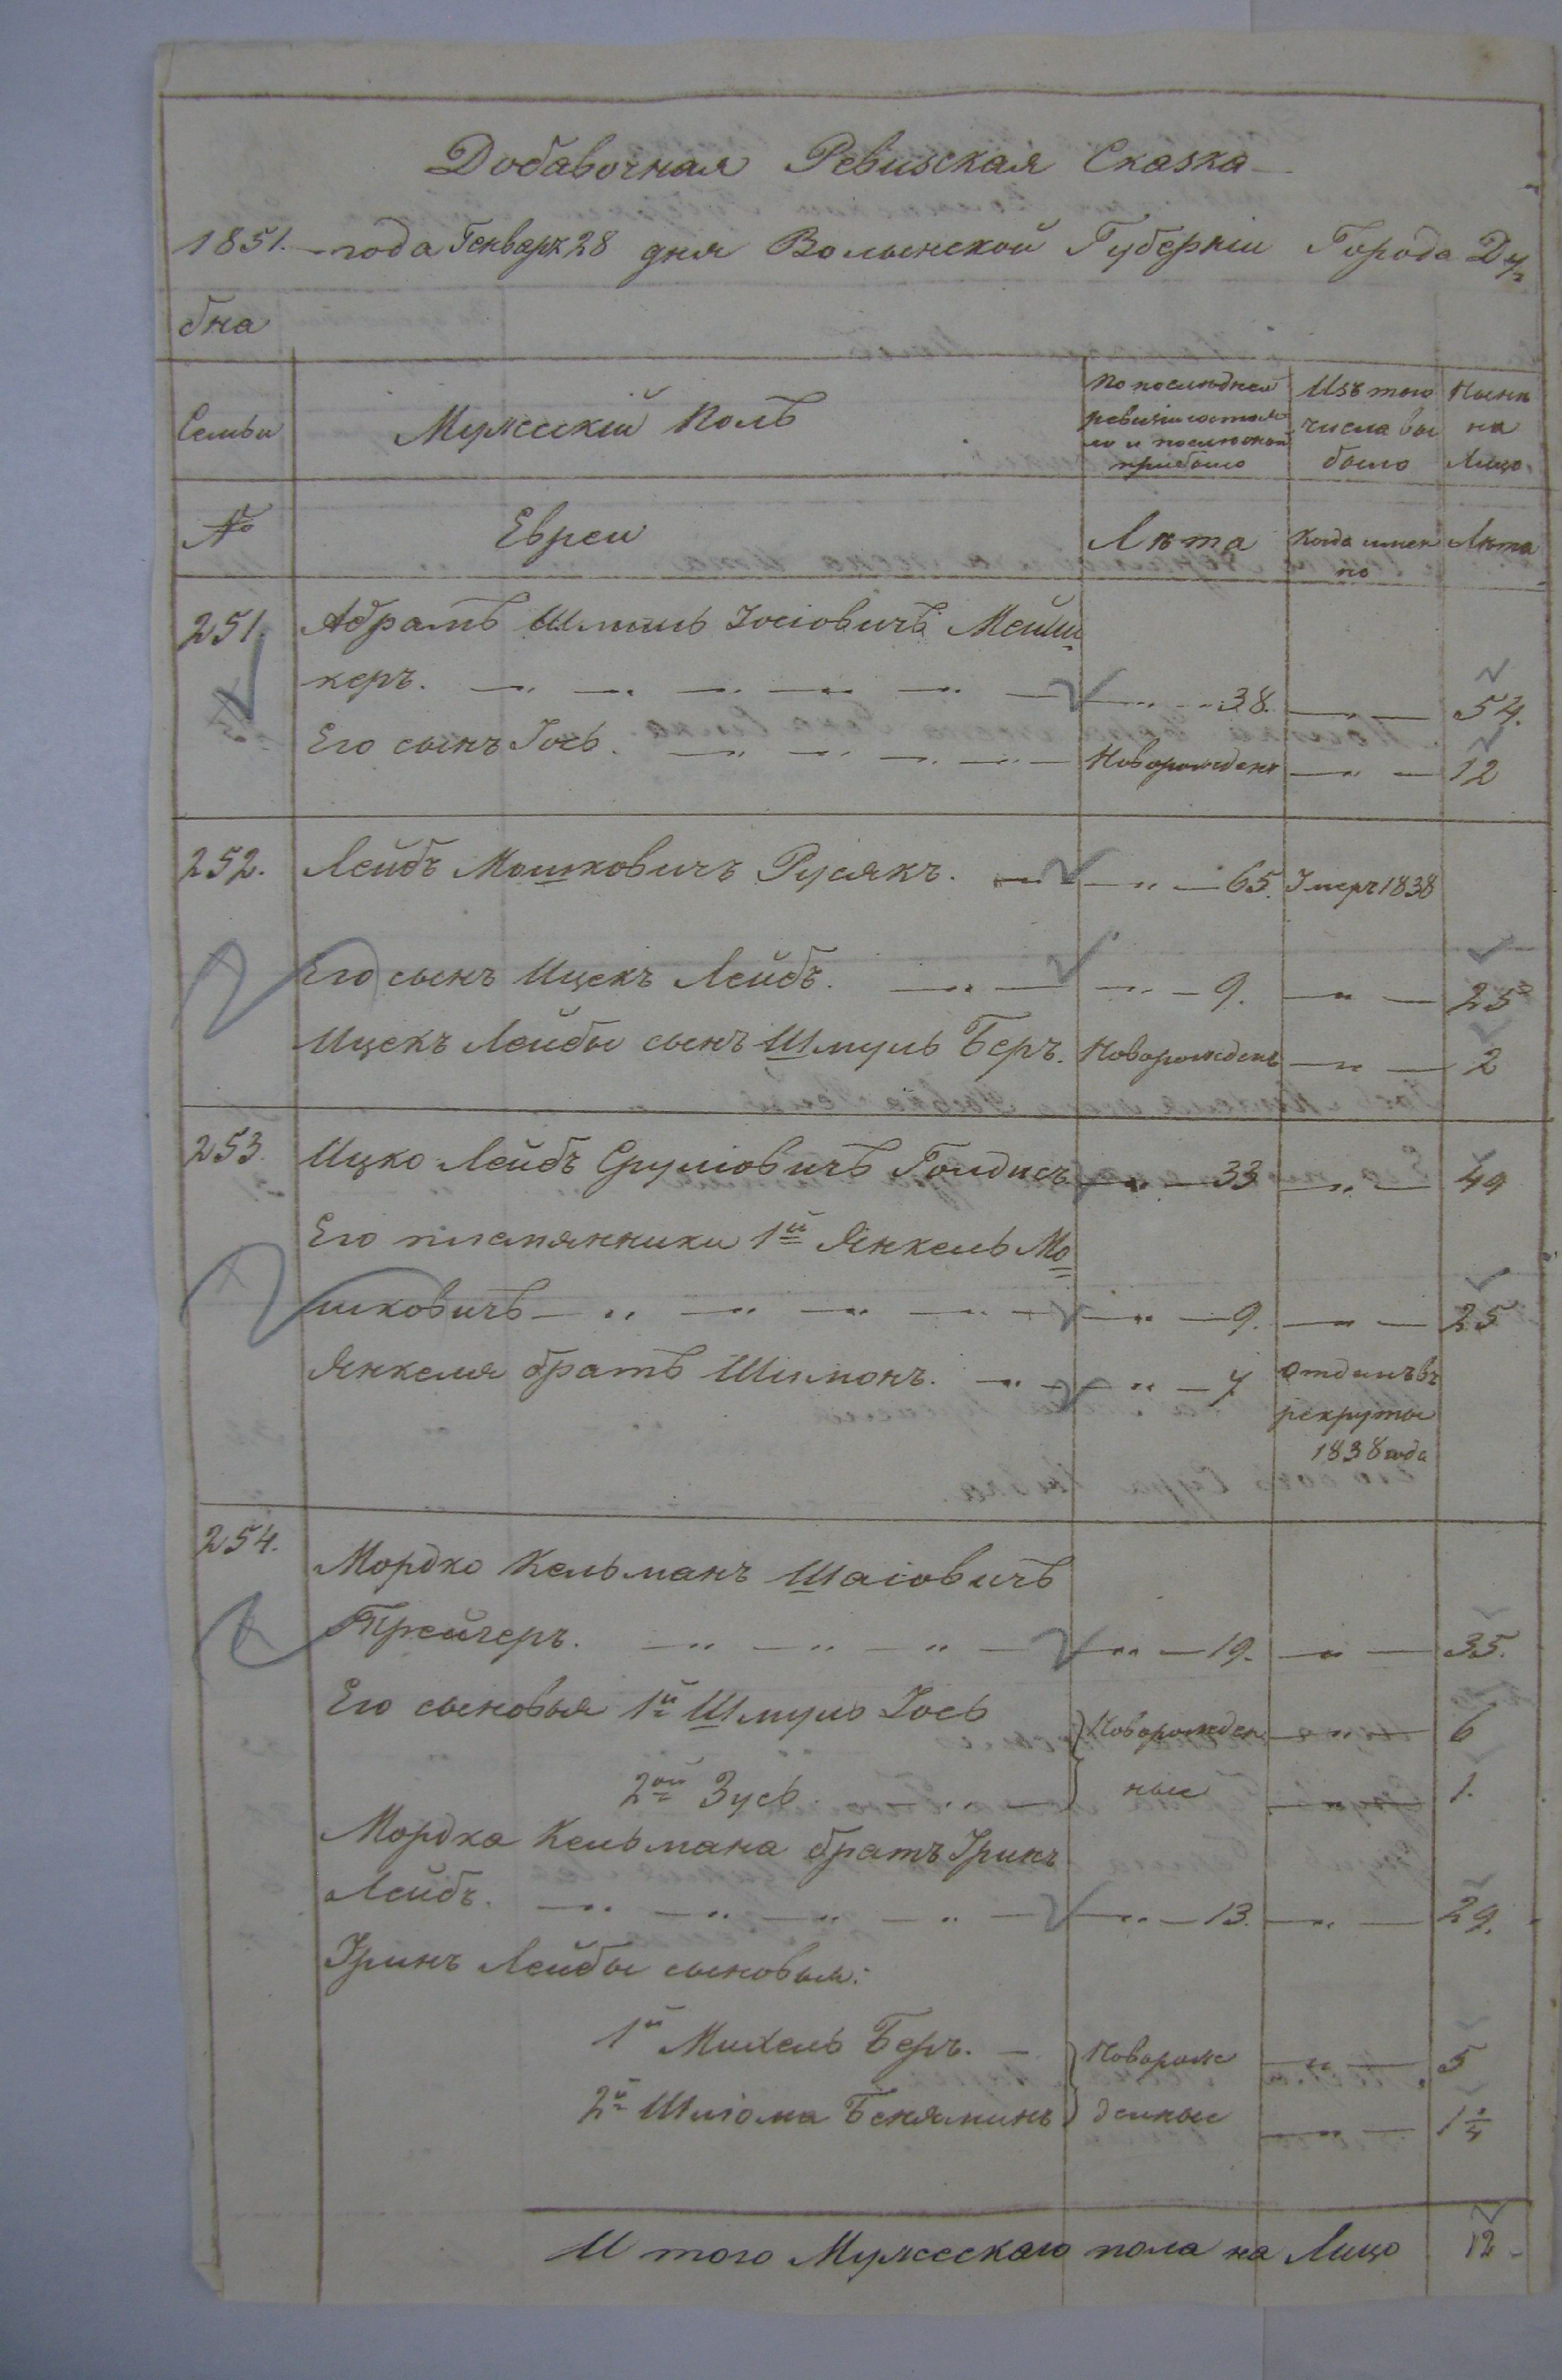 Добавочная Ревиская Сказка
1851. года Генваря 28 дня Волынской Губерніи Города Ду-
бна
Семьи
Мужескій Полъ
По последней
ревизіи состоя-
ло и после оной
прибыло
Изъ того
числа вы
было
Нынѣ
на
Лицо
№
Евреи
Лѣта
Когда имен
но
Лѣта
251.
Абрамъ Шмуль Іосіовичъ Мейш
керъ. 38. 54.
Его сынъ Іось. Новорожденъ 12
252. Лейбъ Мошковичъ Русякъ. 65. Умеръ 1838
Его сынъ Ицекъ Лейбъ. 9. 25
Ицекъ Лейбы сынъ Шмуль Беръ. Новорожденъ 2
253. Ицко Лейбъ Сруліовичъ Голдисъ 33 49
Его племянники 1й Янкель Мо
шковичъ 9. 25
Янкеля братъ Шимонъ. 7
отданъ въ
рекруты
1838 года
254.
Мордко Кельманъ Шаіовичъ
Трейгеръ. 19. 35.
Его сыновья 1й Шмуль Іось Новорожден 6
2ой Зусь. ные 1.
Мордка Кельмана братъ Іринъ
Лейбъ. 13. 29.
Іринъ Лейбы сыновья:
1й Михель Беръ. Новорож 5
2й Шліома Беняминъ денные 1 1/4
И того Мужескаго пола на Лицо 12